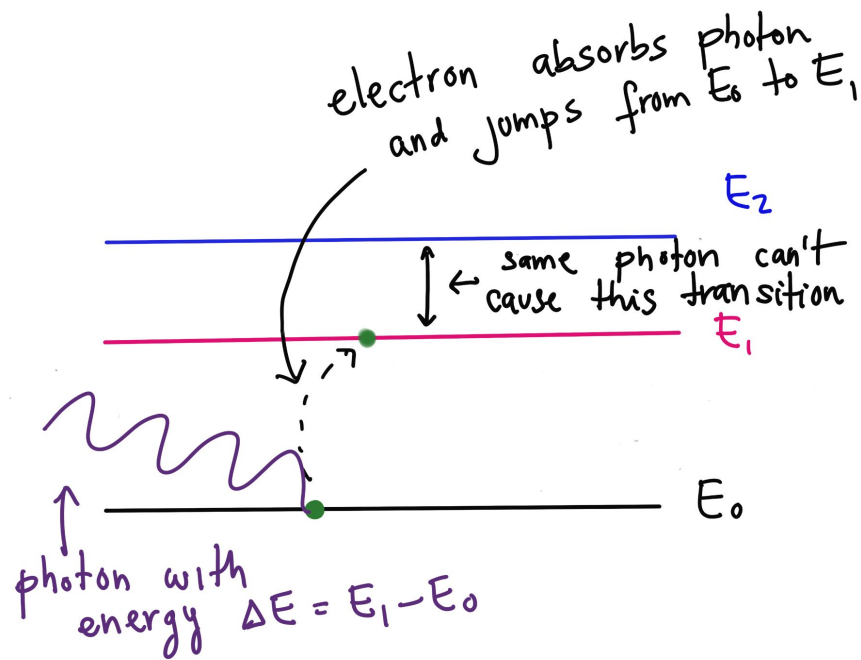 electron absorbs photon
and jumps from E₀ to E₁
E₂
← same photon can't
cause this transition
E₁
E₀
photon with
energy ΔE = E₁ - E₀